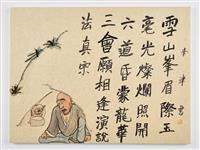 雪山峯眉際玉
毫光燦爛照開
六道昏蒙龍華
三會願相逢演説
法真宗